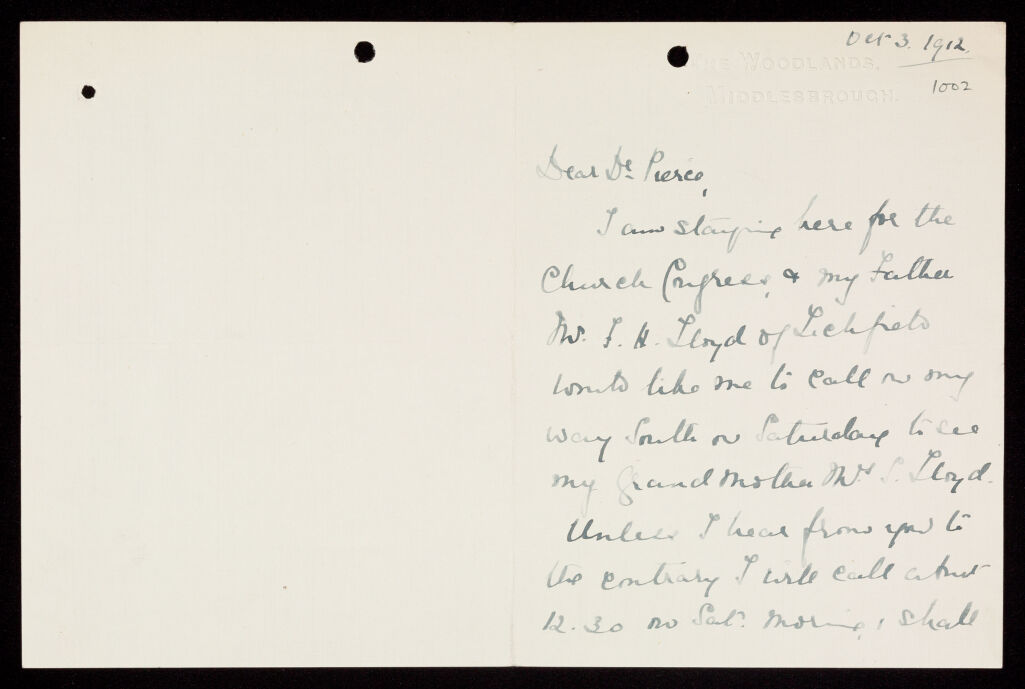 Oct 3. 1912.
THE WOODLANDS,
MIDDLESBROUGH.
1002
Dear Dr. Pierce,
I am staying here for the
Church Congress, & my Father
Mr. F. H. Lloyd of Lichfield
would like me to call on my
way South on Saturday to see
my Grandmother Mrs S. Lloyd.
Unless I hear from you to
the contrary I will call about
12.30 on Sat. morning, & shall